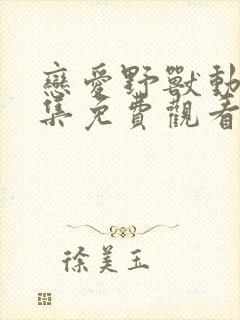 戀愛野獸動
集免費觀看
徐美玉